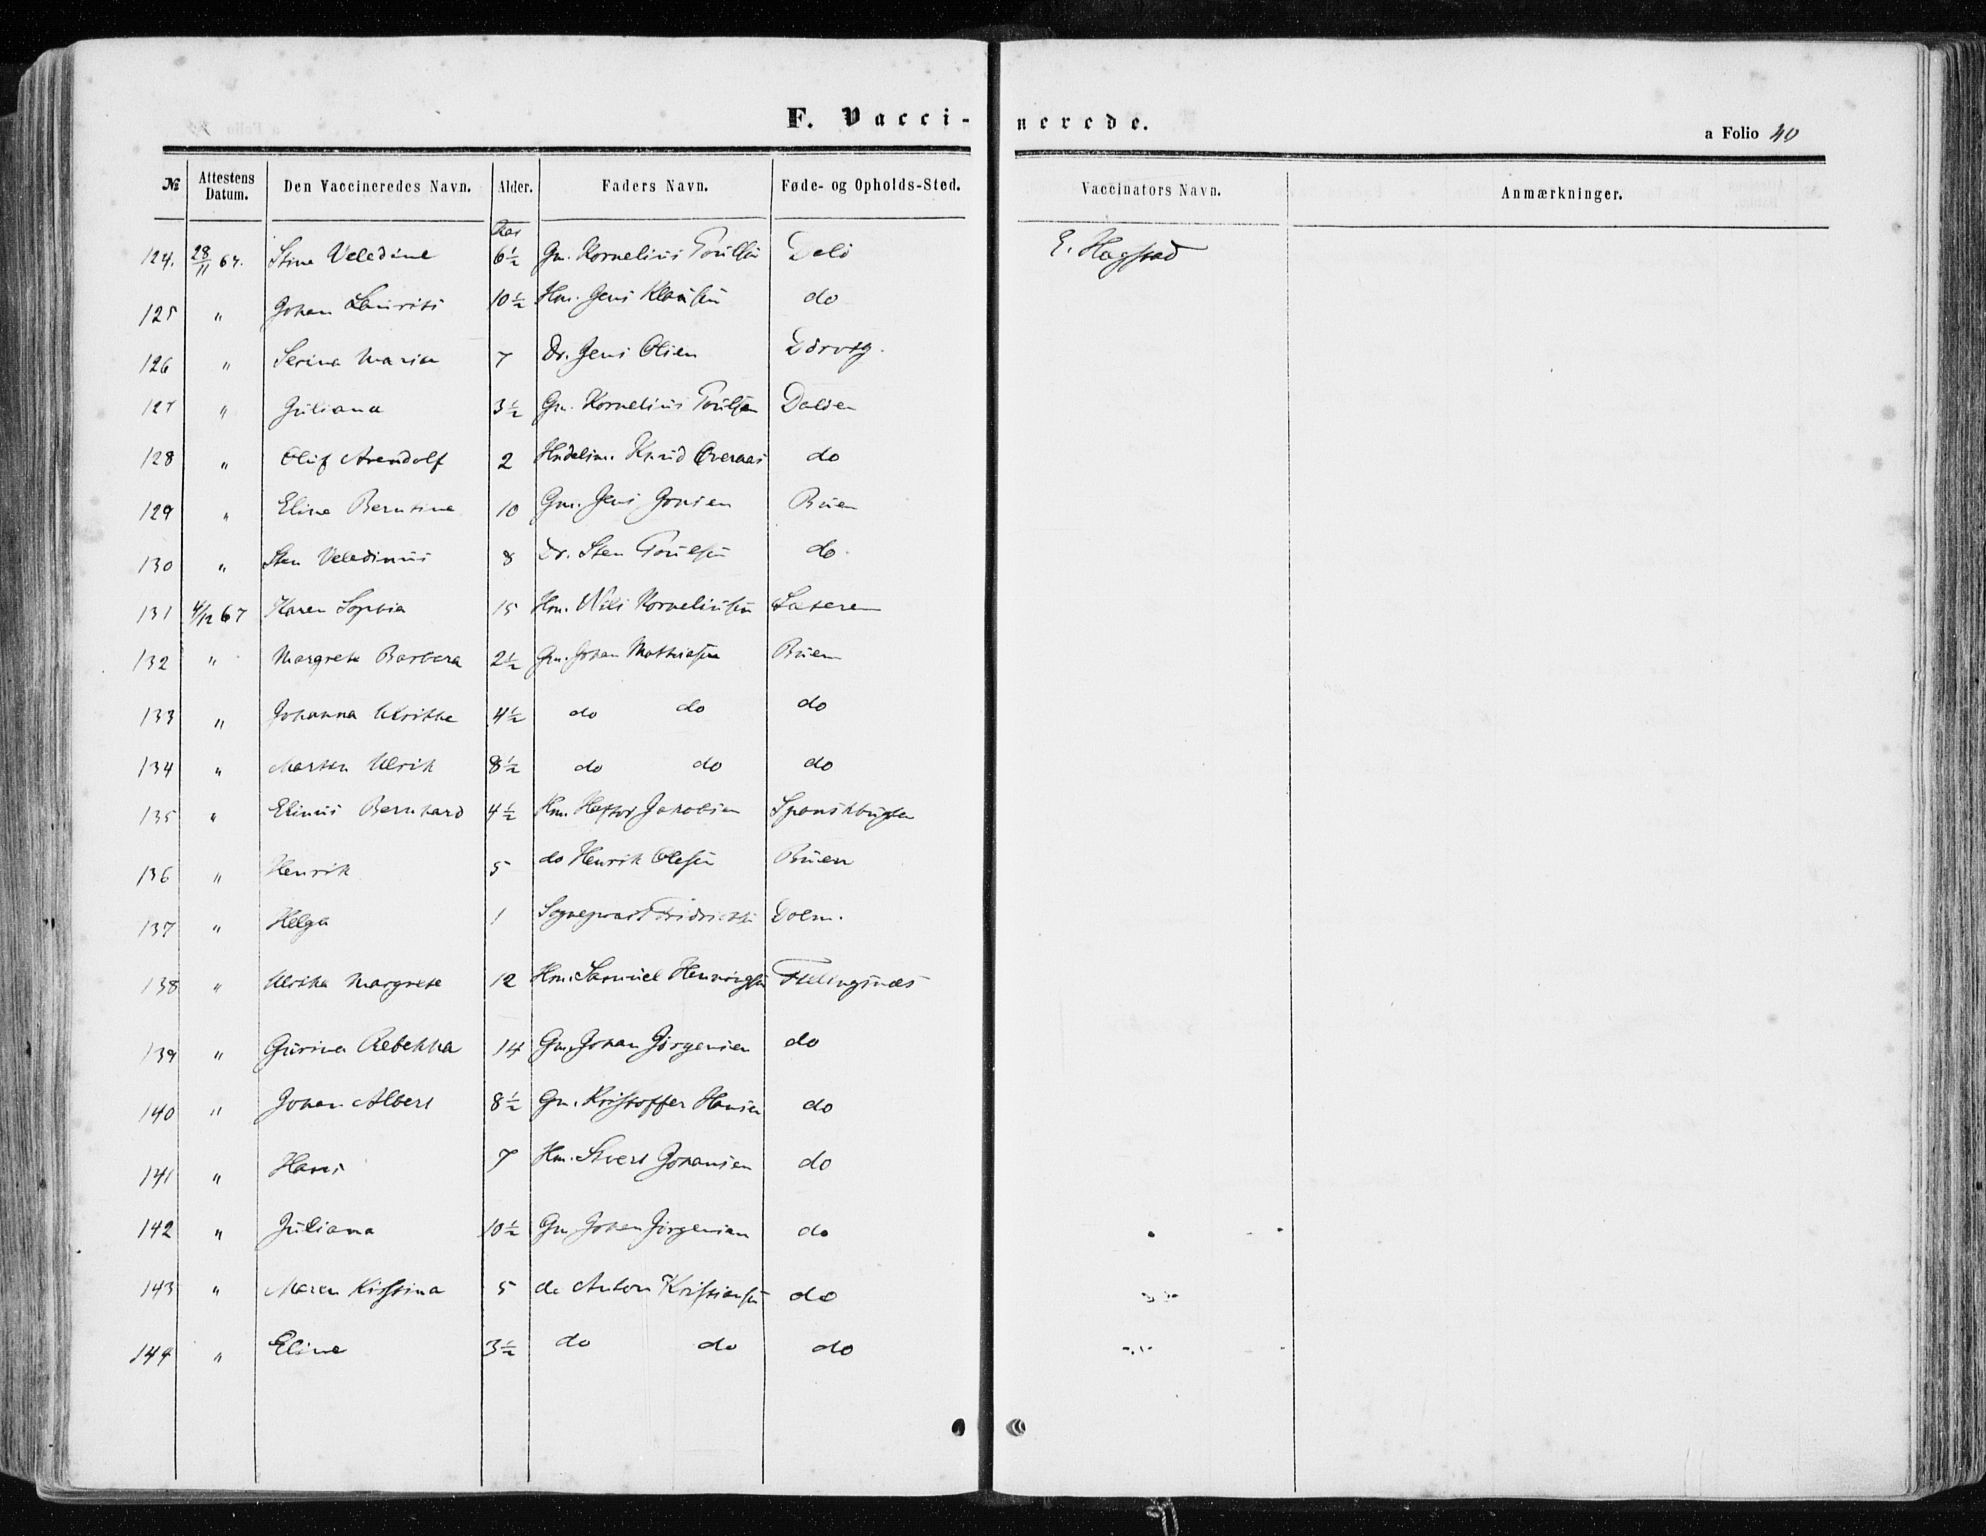 F. Vacci-nerede.
a Folio 40
№ Attestens Datum. Den Vaccineredes Navn. Alder. Faders Navn. Føde- og Opholds-Sted. Vaccinators Navn. Anmærkninger.
Aar
124. 28/11 67. Stine Veledine 6½ Gm. Kornelius Poulsen E. Hagstad
125 " Johan Laurits 10½ Hm. Jens Klausen do
126 " Serina Maria 7 Dr. Jens Olsen
127 " Juliana 3½ Gm. Kornelius Poulsen Dalden
128 " Oluf Arendolf 2 Hndelsm. Knud Overaas do
129 " Eline Berntine 10 Gm. Jens Jonsen Buen
130 " Sten Veledinus 8 Dr. Sten Poulsen do.
131 4/12 67 Karen Sophia 15 Hm. Nils Korneliussen
132 " Margrete Barbara 2½ Gm. Johan Mathiasen Buen
133 " Johanna Ulrikke 4½ do do do
134 " Morten Ulrik 8½ do do do
135 " Elinus Bernhard 4½ Hm. Hektor Jakobsen Spanskbugten
136 " Henrik 5 do Henrik Olesen Buen
137 " Helga 1 Sogneprest Fridrichsen Dolm.
138 " Ulrikke Margrete 12 Hm. Samuel Henningsen Fillingsnæs
139 " Gurina Rebekka 14 Gm. Johan Jørgensen do
140 " Johan Albert 8½ Gm. Kristoffer Hansen do
141 " Hans 7 Hm. Sivert Johansen do
142 " Juliana 10½ Gm Johan Jørgensen do
143 " Maren Kirstina 5 do Anton Kristiansen do
144 " Eline 3½ do do do